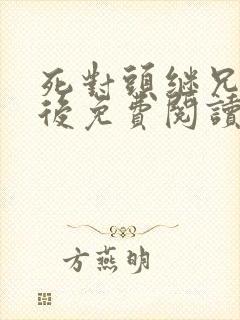 死對頭繼兄
後免費閱讀
方燕明